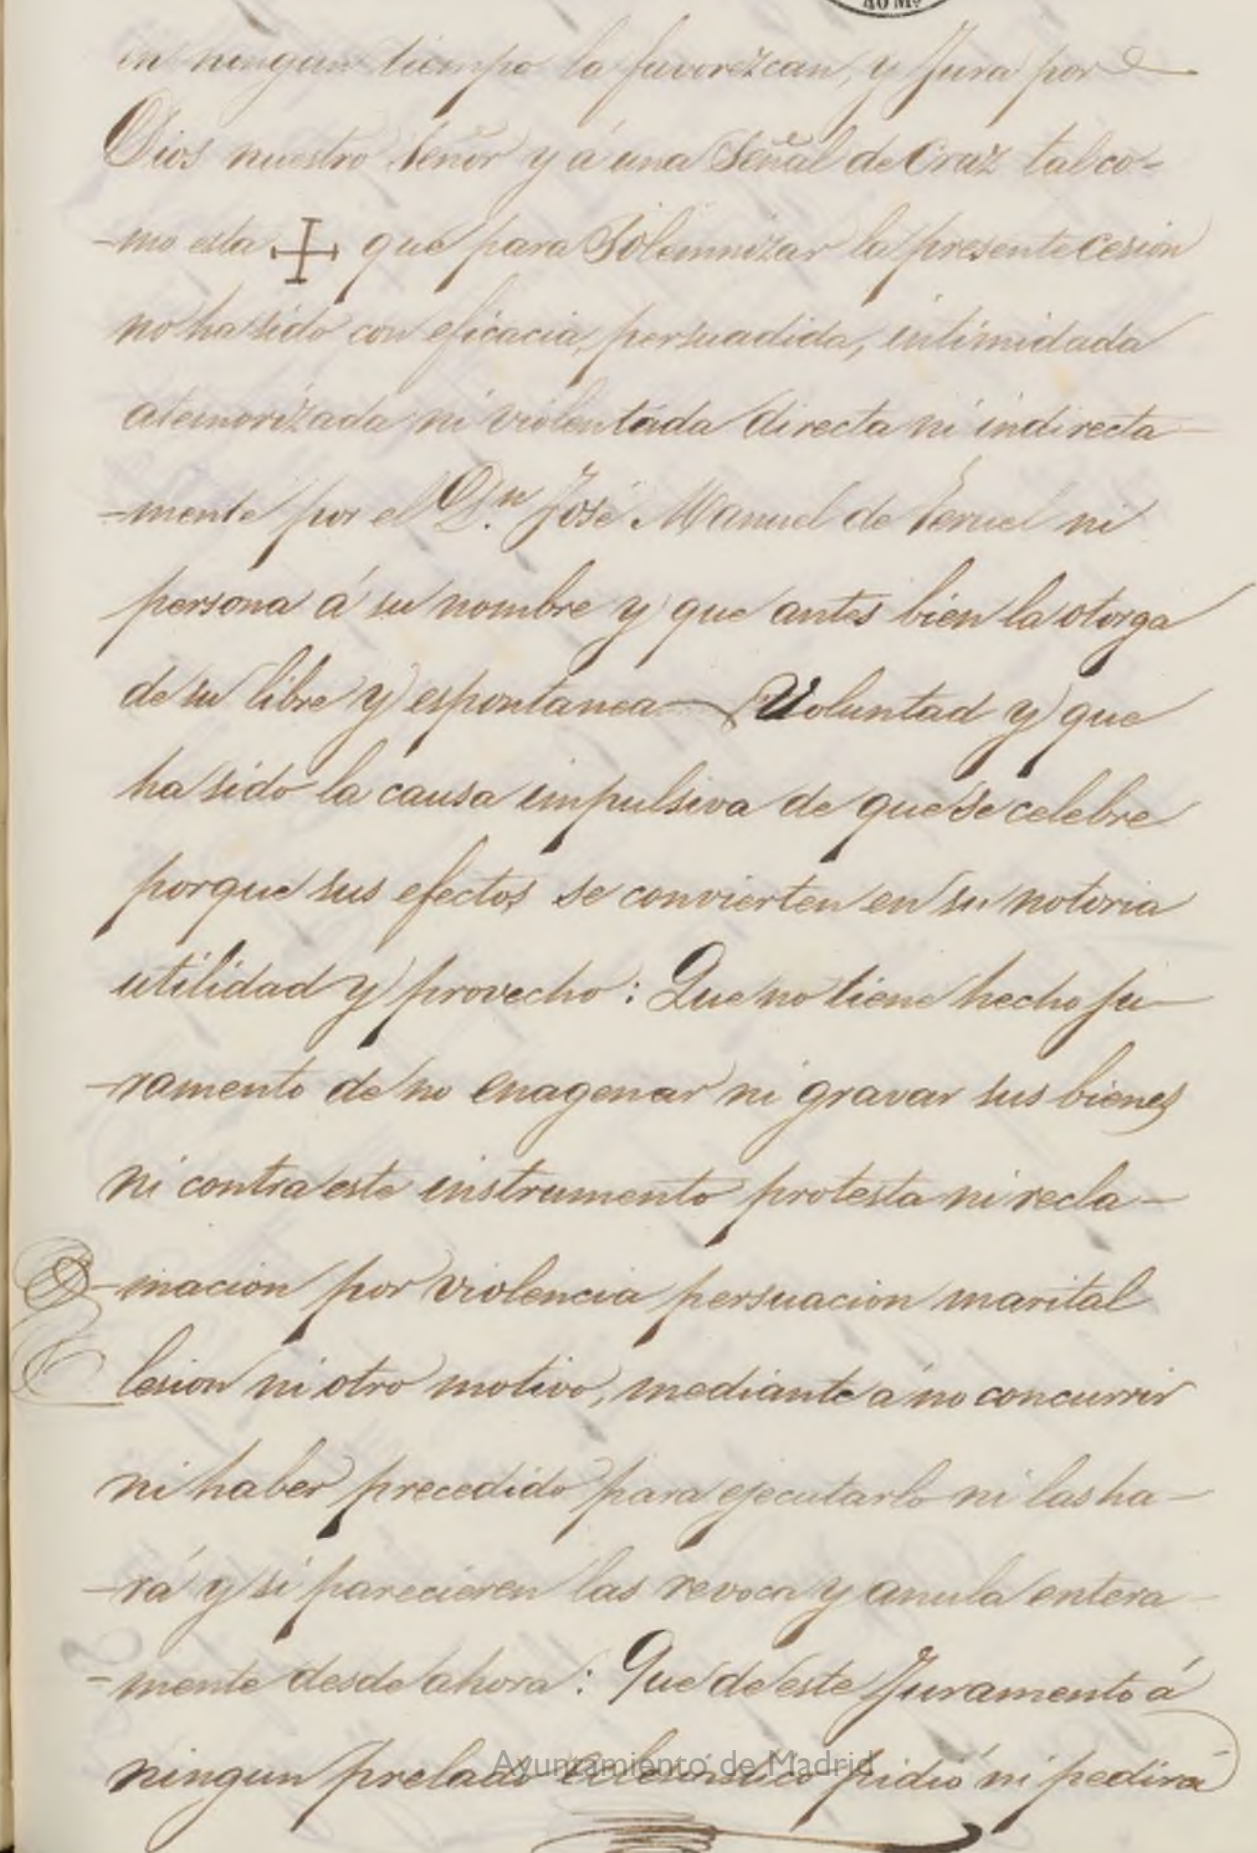 AO M.º
en ningun tiempo la favorezcan, y Jura por
Dios nuestro Señor y á una Señal de Cruz tal co-
-mo esta ✝ que para Solemnizar la presente cesion
no ha sido con eficacia, persuadida, intimidada
atemorizada ni violentada directa ni indirecta
-mente por el D.n José Manuel de Teruel ni
persona á su nombre y que antes bien la otorga
de su libre y espontanea Voluntad y que
ha sido la causa impulsiva de que se celebre
porque sus efectos se convierten en su notoria
utilidad y provecho: Que no tiene hecho ju-
-ramento de no enagenar ni gravar sus bienes
ni contra este instrumento protesta ni recla-
-macion por violencia persuacion marital
lesion ni otro motivo, mediante á no concurrir
ni haber precedido para ejecutarlo ni las ha-
-rá y si parecieren las revoca y anula entera
-mente desde ahora: Que de este Juramento á
ningun prelado eclesiastico pidió ni pedirá
Ayuntamiento de Madrid